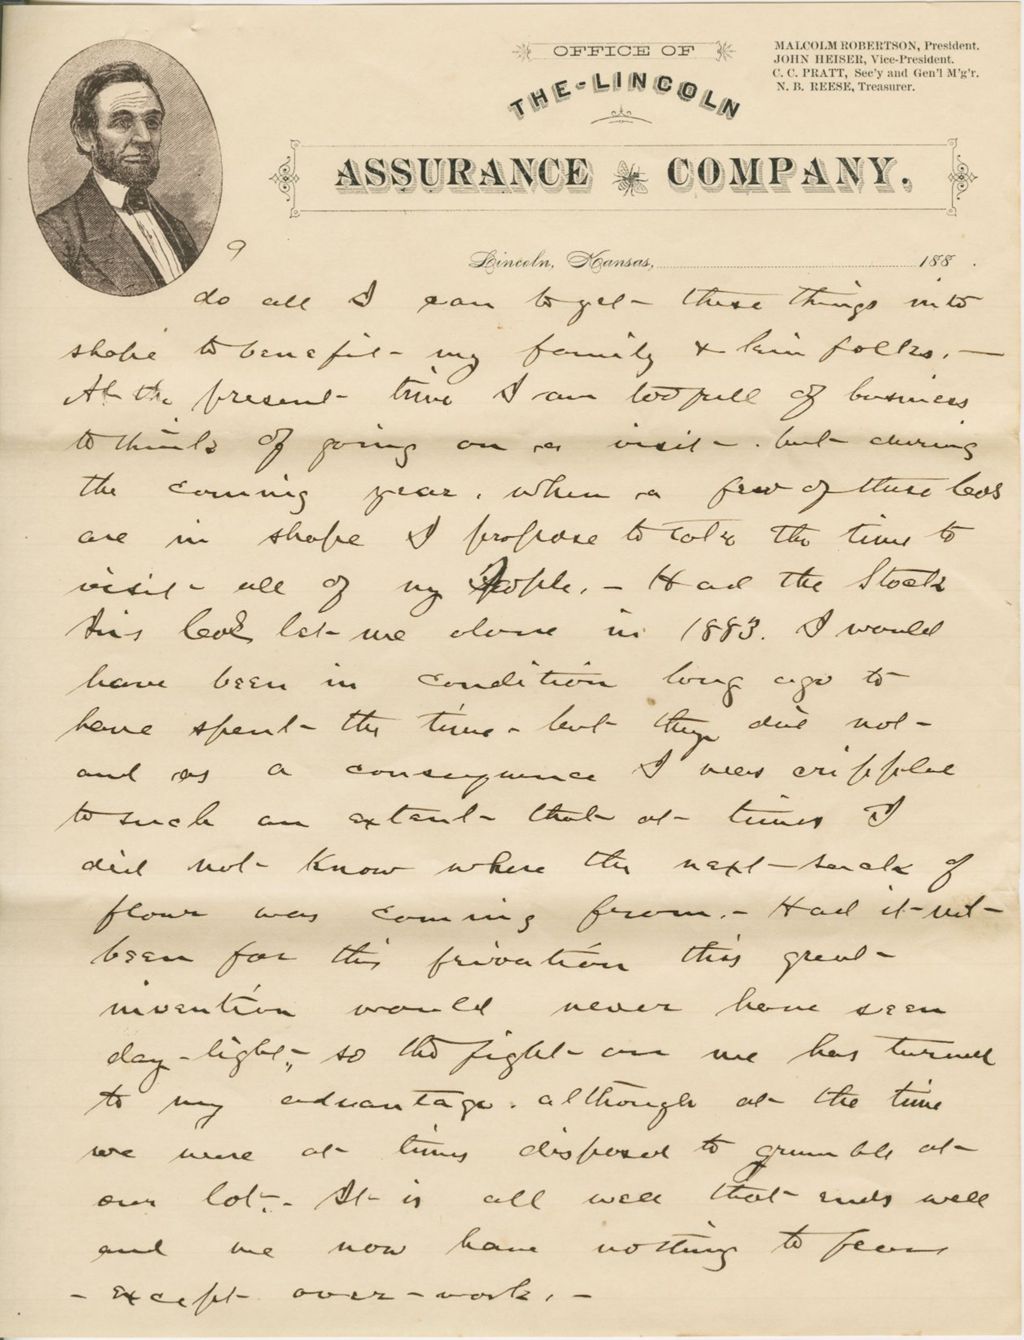 OFFICE OF
THE-LINCOLN
ASSURANCE COMPANY.
MALCOLM ROBERTSON, President.
JOHN HEISER, Vice-President.
C. C. PRATT, Sec'y and Gen'l M'g'r.
N. B. REESE, Treasurer.
Lincoln, Kansas, 188 .
9
do all I can to get these things into
shape to benefit my family & kin folks. —
At the present time I am too full of business
to think of going on a visit - but during
the coming year, when a few of these
are in shape I propose to take the time to
visit all of my People. - Had the Stock
let me alone in 1883. I would
have been in condition long ago to
have spent the time - but they did not -
and as a consequence I was crippled
to such an extent that at times I
did not know where the next sack of
flour was coming from. - Had it not
been for this privation this great
invention would never have seen
day-light, so the fight on me has turned
to my advantage. although at the time
we were at times disposed to grumble at
our lot. - It is all well that ends well
and we now have nothing to fear
- except over-work. -